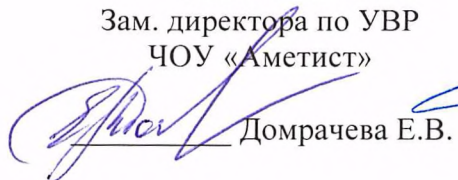 Зам. директора по УВР
ЧОУ «Аметист»
Домрачева Е.В.